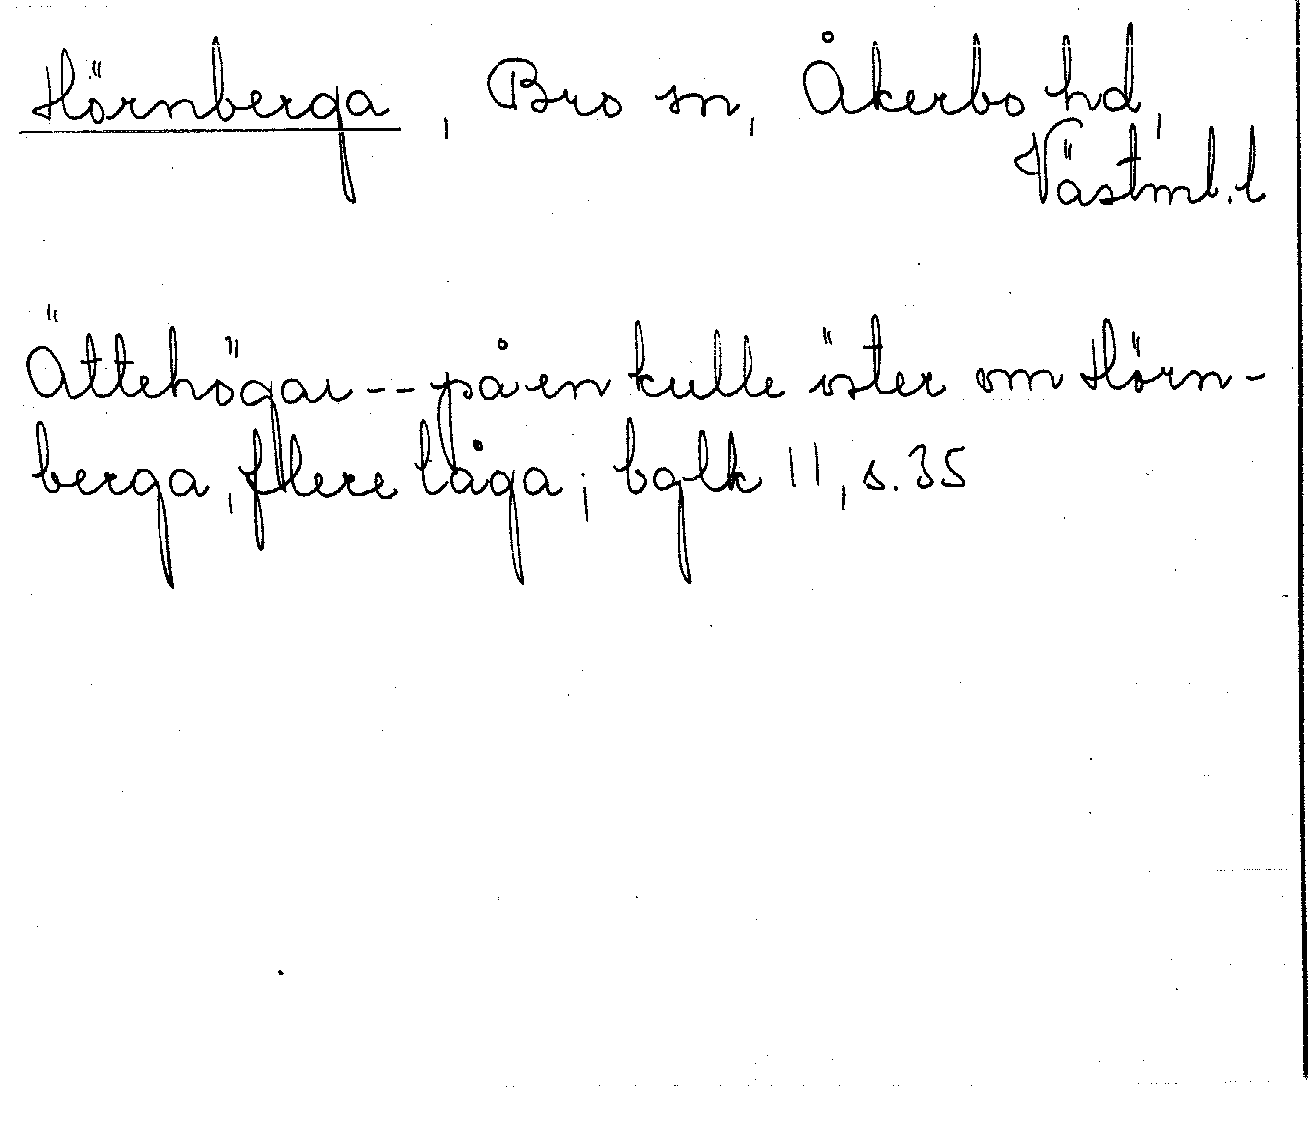 Hörnberga, Bro sn, Åkerbo hd,
Västml. l
Ättehögar -- på en kulle öster om Hörn-
berga, flere låga; bglk 11, s. 35